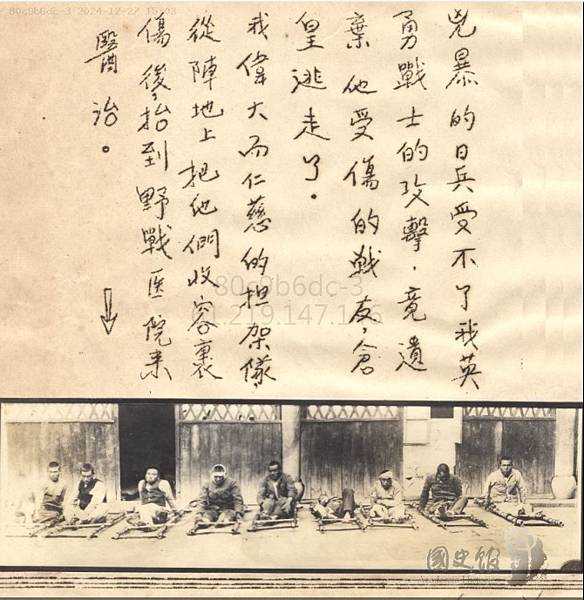 80c9b6dc-3 2024-12-27 15:03
兇暴的日兵受不了我英
勇戰士的攻擊，竟遺
棄他受傷的戰友，倉
皇逃走了。
我偉大而仁慈的担架隊
從陣地上把他們收容裹
傷後抬到野戰医院来
醫治。
80c9b6dc-3
61.219.147.1
國史館